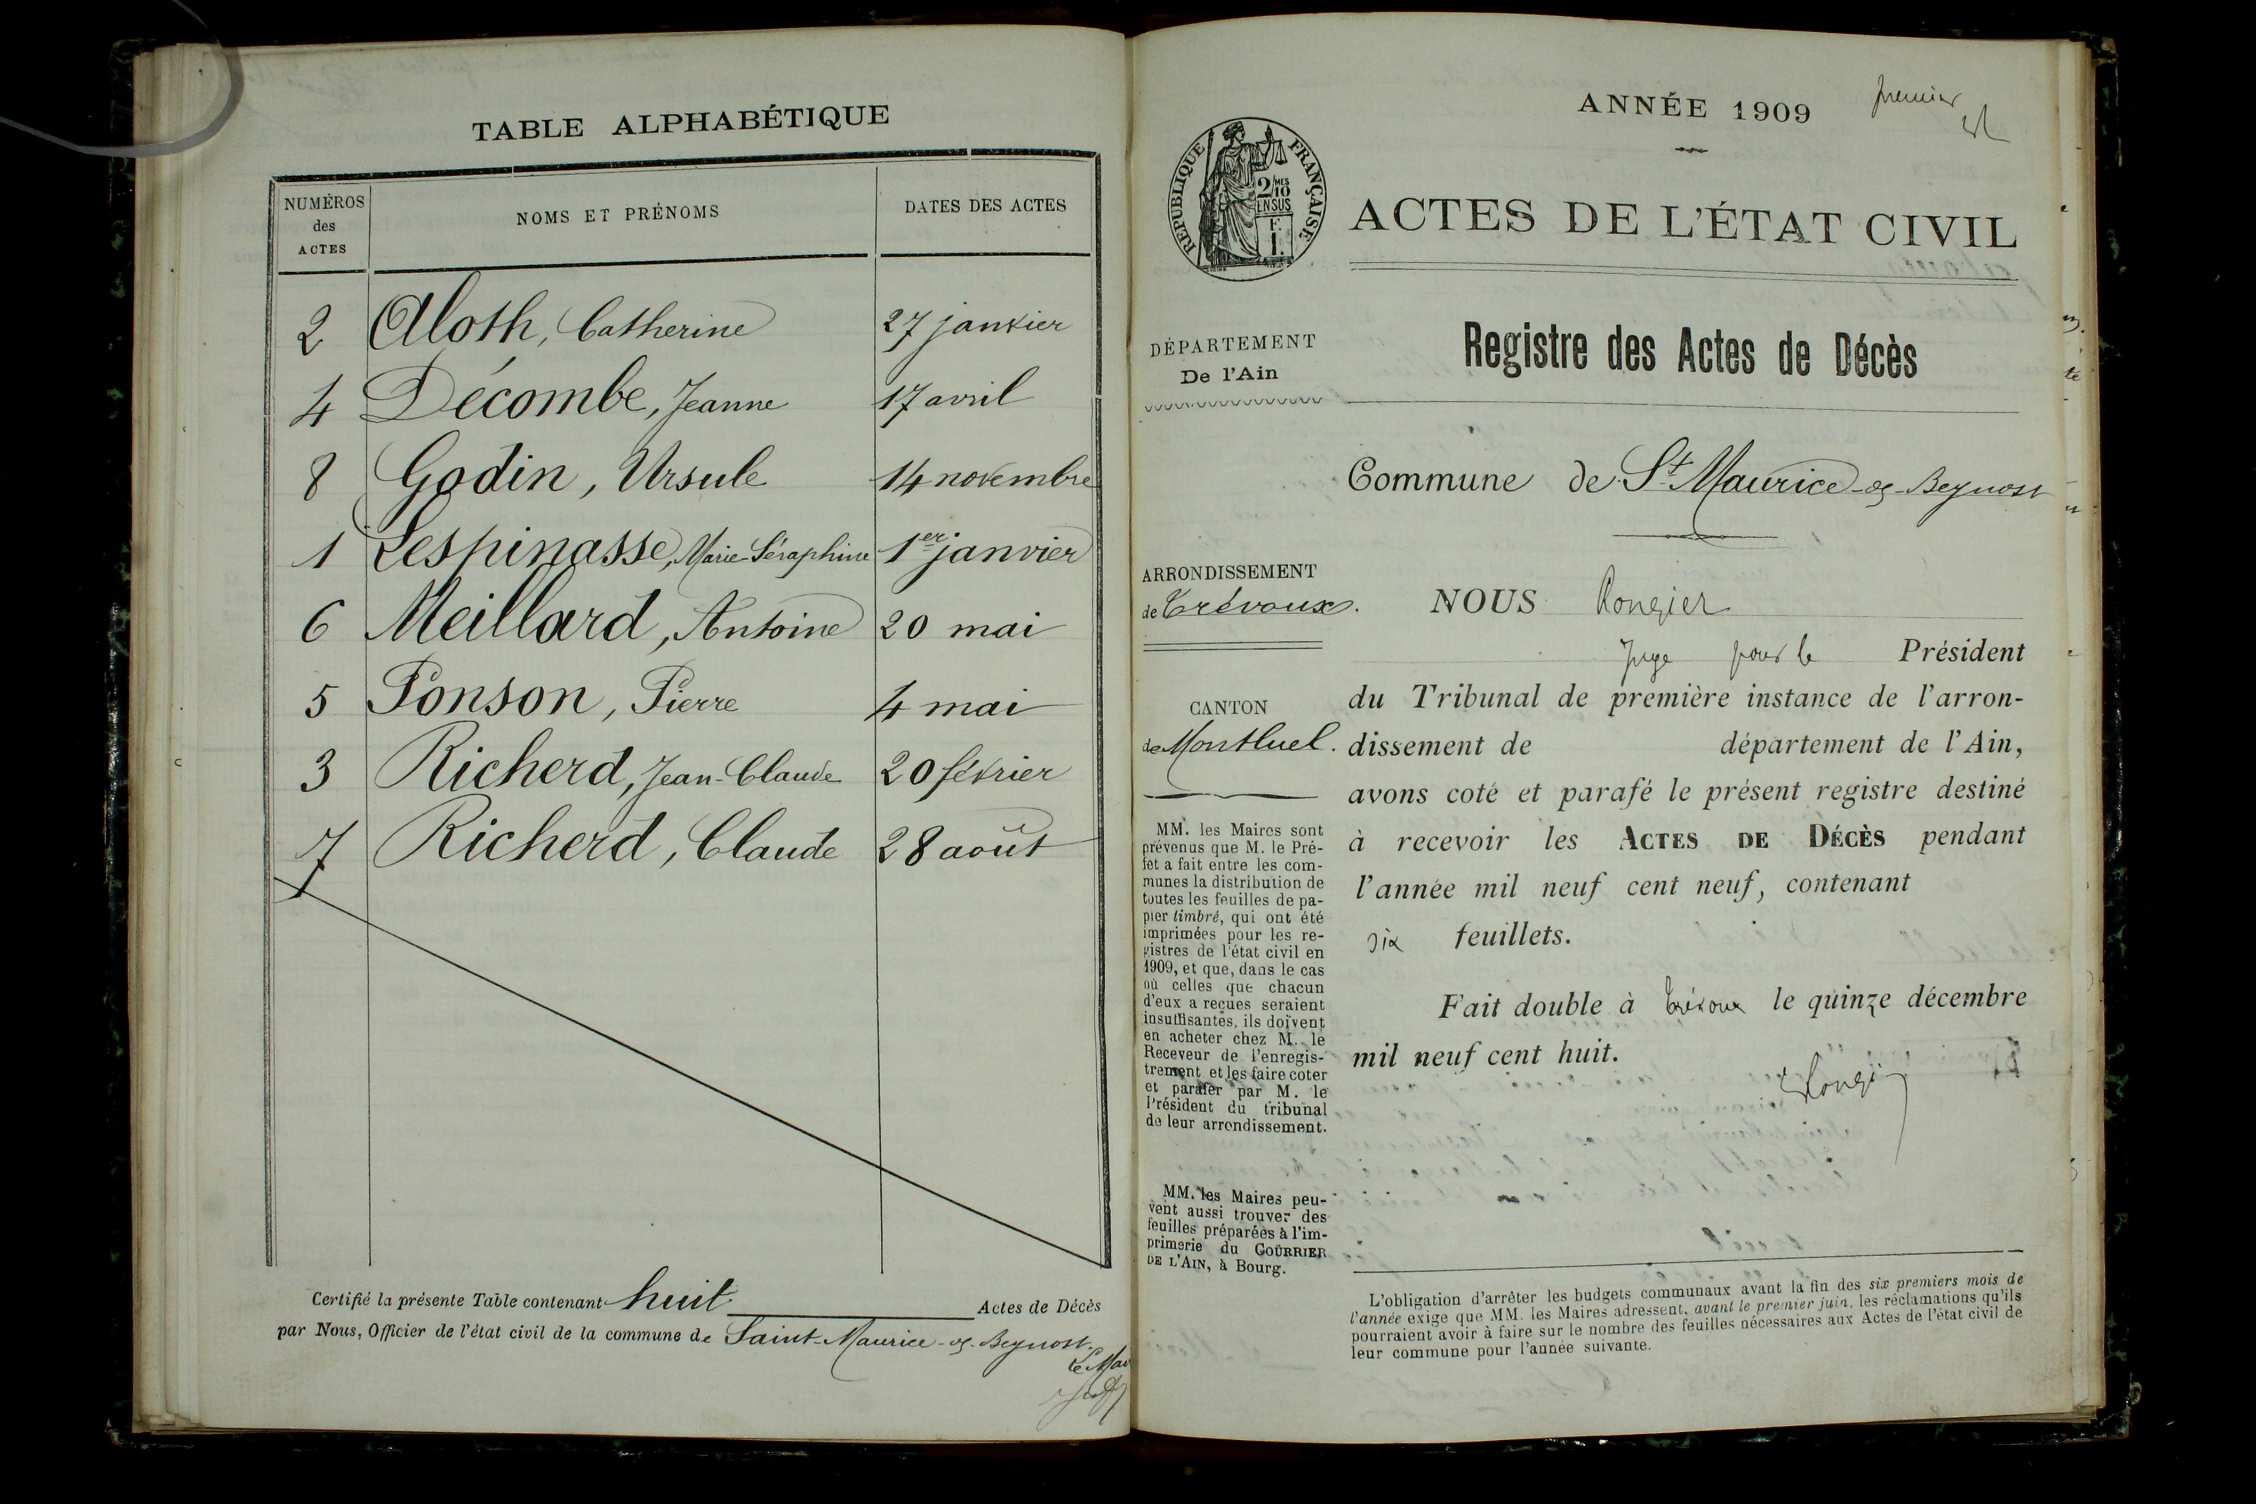 TABLE ALPHABÉTIQUE
NUMÉROS des ACTES NOMS ET PRÉNOMS DATES DES ACTES
2 Aloth, Catherine 27 janvier
4 Décombe, Jeanne 17 avril
8 Godin, Ursule 14 novembre
1 Lespinasse, Marie-Séraphine 1er janvier
6 Meillard, Antoine 20 mai
5 Ponson, Pierre 4 mai
3 Richerd, Jean-Claude 20 février
7 Richerd, Claude 28 août
Certifié la présente Table contenant huit Actes de Décès
par Nous, Officier de l'état civil de la commune de Saint-Maurice-de-Beynost.
ANNÉE 1909
premier
RÉPUBLIQUE FRANÇAISE
2/10 MES
EN SUS
F.
1.
ACTES DE L'ÉTAT CIVIL
DÉPARTEMENT
De l'Ain
ARRONDISSEMENT
de Trévoux.
CANTON
de Montluel.
MM. les Maires sont
prévenus que M. le Pré-
fet a fait entre les com-
munes la distribution de
toutes les feuilles de pa-
pier timbré, qui ont été
imprimées pour les re-
gistres de l'état civil en
1909, et que, dans le cas
où celles que chacun
d'eux a reçues seraient
insuffisantes, ils doivent
en acheter chez M. le
Receveur de l'enregis-
trement et les faire coter
et parafer par M. le
Président du tribunal
de leur arrondissement.
MM. les Maires peu-
vent aussi trouver des
feuilles préparées à l'im-
primerie du COURRIER
DE L'AIN, à Bourg.
Registre des Actes de Décès
Commune de St Maurice-de-Beynost
NOUS Rongier
Juge pour le Président
du Tribunal de première instance de l'arron-
dissement de département de l'Ain,
avons coté et parafé le présent registre destiné
à recevoir les ACTES DE DÉCÈS pendant
l'année mil neuf cent neuf, contenant
six feuillets.
Fait double à Trévoux le quinze décembre
mil neuf cent huit.
L'obligation d'arrêter les budgets communaux avant la fin des six premiers mois de
l'année exige que MM. les Maires adressent, avant le premier juin, les réclamations qu'ils
pourraient avoir à faire sur le nombre des feuilles nécessaires aux Actes de l'état civil de
leur commune pour l'année suivante.